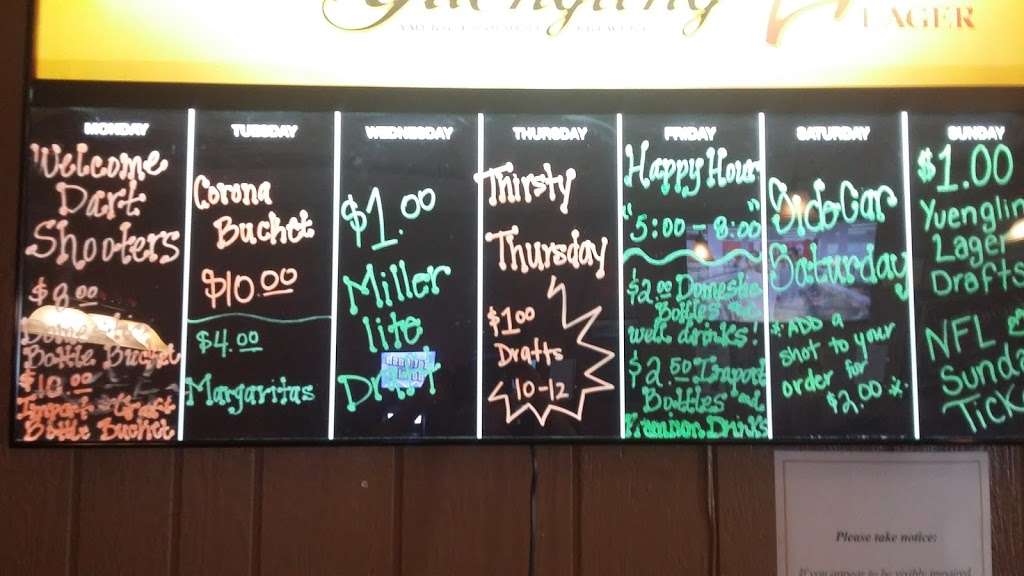 Yuengling
LAGER
MONDAY
Welcome
Dart
Shooters
$8.00
Domestic
Bottle Bucket
$10.00
Import Craft
Bottle Bucket
TUESDAY
Corona
Bucket
$10.00
$4.00
Margaritas
WEDNESDAY
$1.00
Miller
lite
Draft
THURSDAY
Thirsty
Thursday
$1.00
Drafts
10-12
FRIDAY
Happy Hour
"5:00 - 8:00"
$2.00 Domestic
Bottles
well drinks!
$2.50 Import
Bottles and
Drinks
SATURDAY
SideCar
Saturday
*ADD a
shot to your
order for
$2.00*
SUNDAY
$1.00
Yuengling
Lager
Drafts
NFL
Sunda
Tick
Please take notice:
If you appear to be visibly impaired